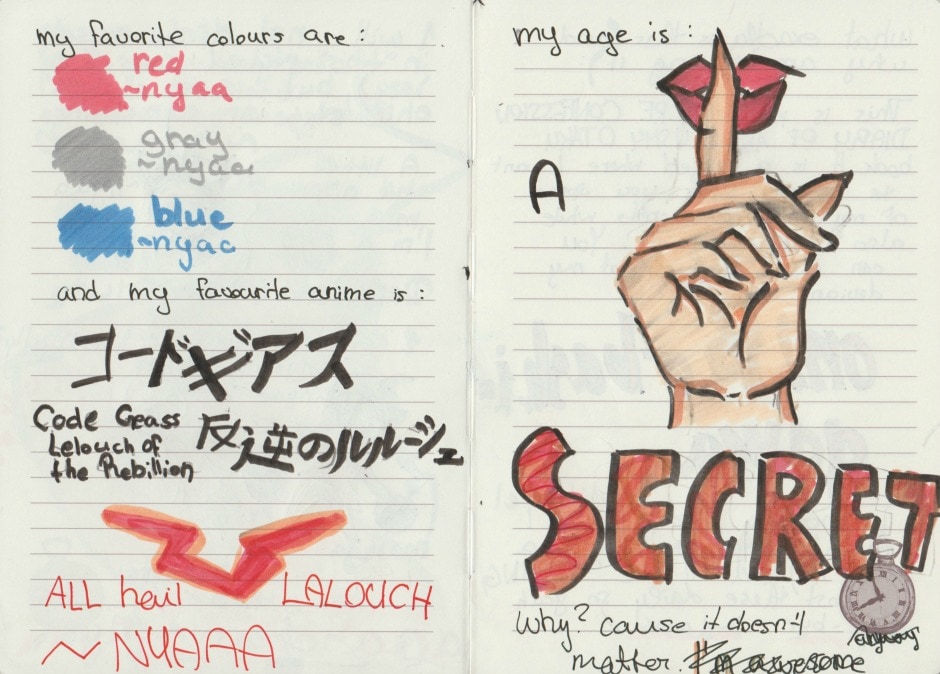 my favorite colours are :
red
~nyaa
gray
~nyaa
blue
~nyaa
and my favourite anime is :
コードギアス
Code Geass
Lelouch of
the Rebillion
反逆のルルーシュ
ALL heil LALOUCH
~ NYAAA
my age is :
A
SECRET
Why? cause it doesn't
matter. I'm awesome